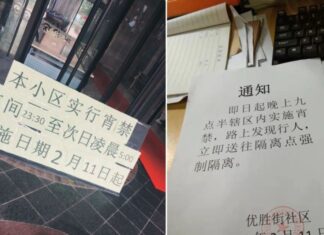 本小区实行宵禁
间23:30至次日凌晨5:00
施日期2月11日起
通知
即日起晚上九
点半辖区内实施宵
禁，路上发现行人，
立即送往隔离点强
制隔离。
优胜街社区
年2月11日